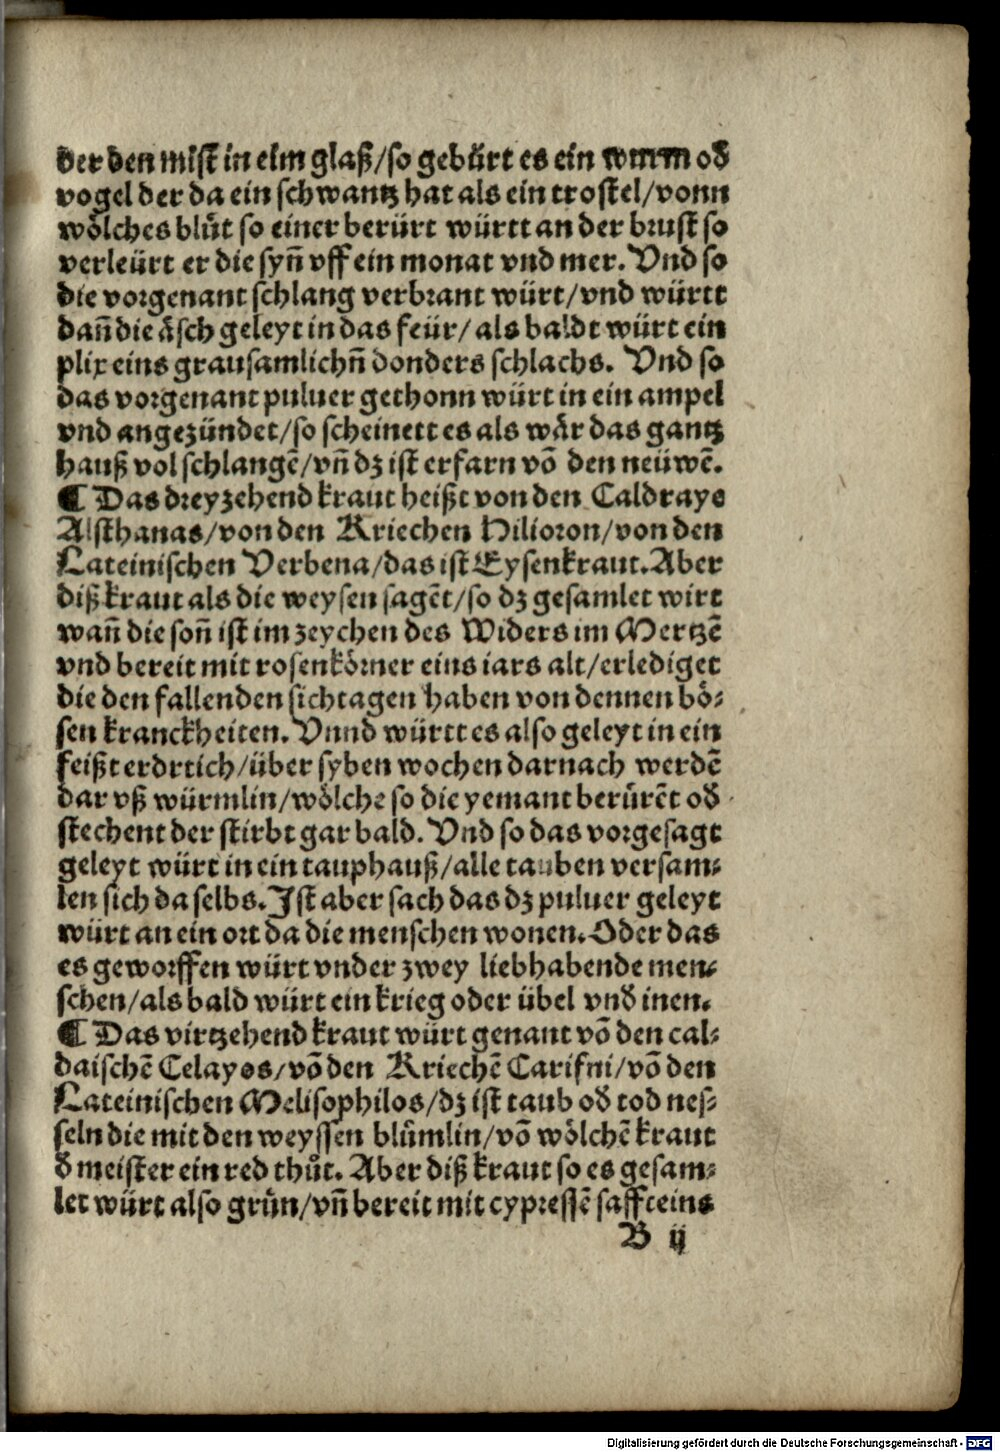 der den mist in eim glaß/so gebürt es ein wurm oď
vogel der da ein schwantz hat als ein trostel/vonn
wölches blůt so einer berürt württ an der brust so
verleürt er die syñ vff ein monat vnd mer. Vnd so
die vorgenant schlang verbrant würt/vnd württ
dañ die äsch geleyt in das feür/als baldt würt ein
plix eins grausamlichñ donders schlachs. Vnd so
das vorgenant puluer gethonn würt in ein ampel
vnd angezündet/so scheinett es als wär das gantz
hauß vol schlangẽ/vñ dz ist erfarn võ den neüwẽ.
¶ Das dreyzehend kraut heißt von den Caldraye
Alsthanas/von den Kriechen Hilioron/von den
Lateinischen Verbena/das ist Eysenkraut. Aber
diß kraut als die weysen sagẽt/so dz gesamlet wirt
wañ die soñ ist im zeychen des Widers im Mertzẽ
vnd bereit mit rosenkörner eins iars alt/erlediget
die den fallenden sichtagen haben von dennen bö⸗
sen kranckheiten. Vnnd württ es also geleyt in ein
feißt erdrtich/über syben wochen darnach werdẽ
dar vß würmlin/wölche so die yemant berürẽt oď
stechent der stirbt gar bald. Vnd so das vorgesagt
geleyt würt in ein tauphauß/alle tauben versam⸗
len sich da selbs. Ist aber sach das dz puluer geleyt
würt an ein ort da die menschen wonen. Oder das
es geworffen würt vnder zwey liebhabende men⸗
schen/als bald würt ein krieg oder übel vnď inen.
¶ Das virtzehend kraut würt genant võ den cal⸗
daischẽ Celayos/võ den Kriechẽ Carifni/võ den
Lateinischen Melisophilos/dz ist taub oď tod nes⸗
seln die mit den weyssen blůmlin/võ wölchẽ kraut
ď meister ein red thůt. Aber diß kraut so es gesam⸗
let würt also grün/vñ bereit mit cypressẽ safft eins
B ij
Digitalisierung gefördert durch die Deutsche Forschungsgemeinschaft - DFG